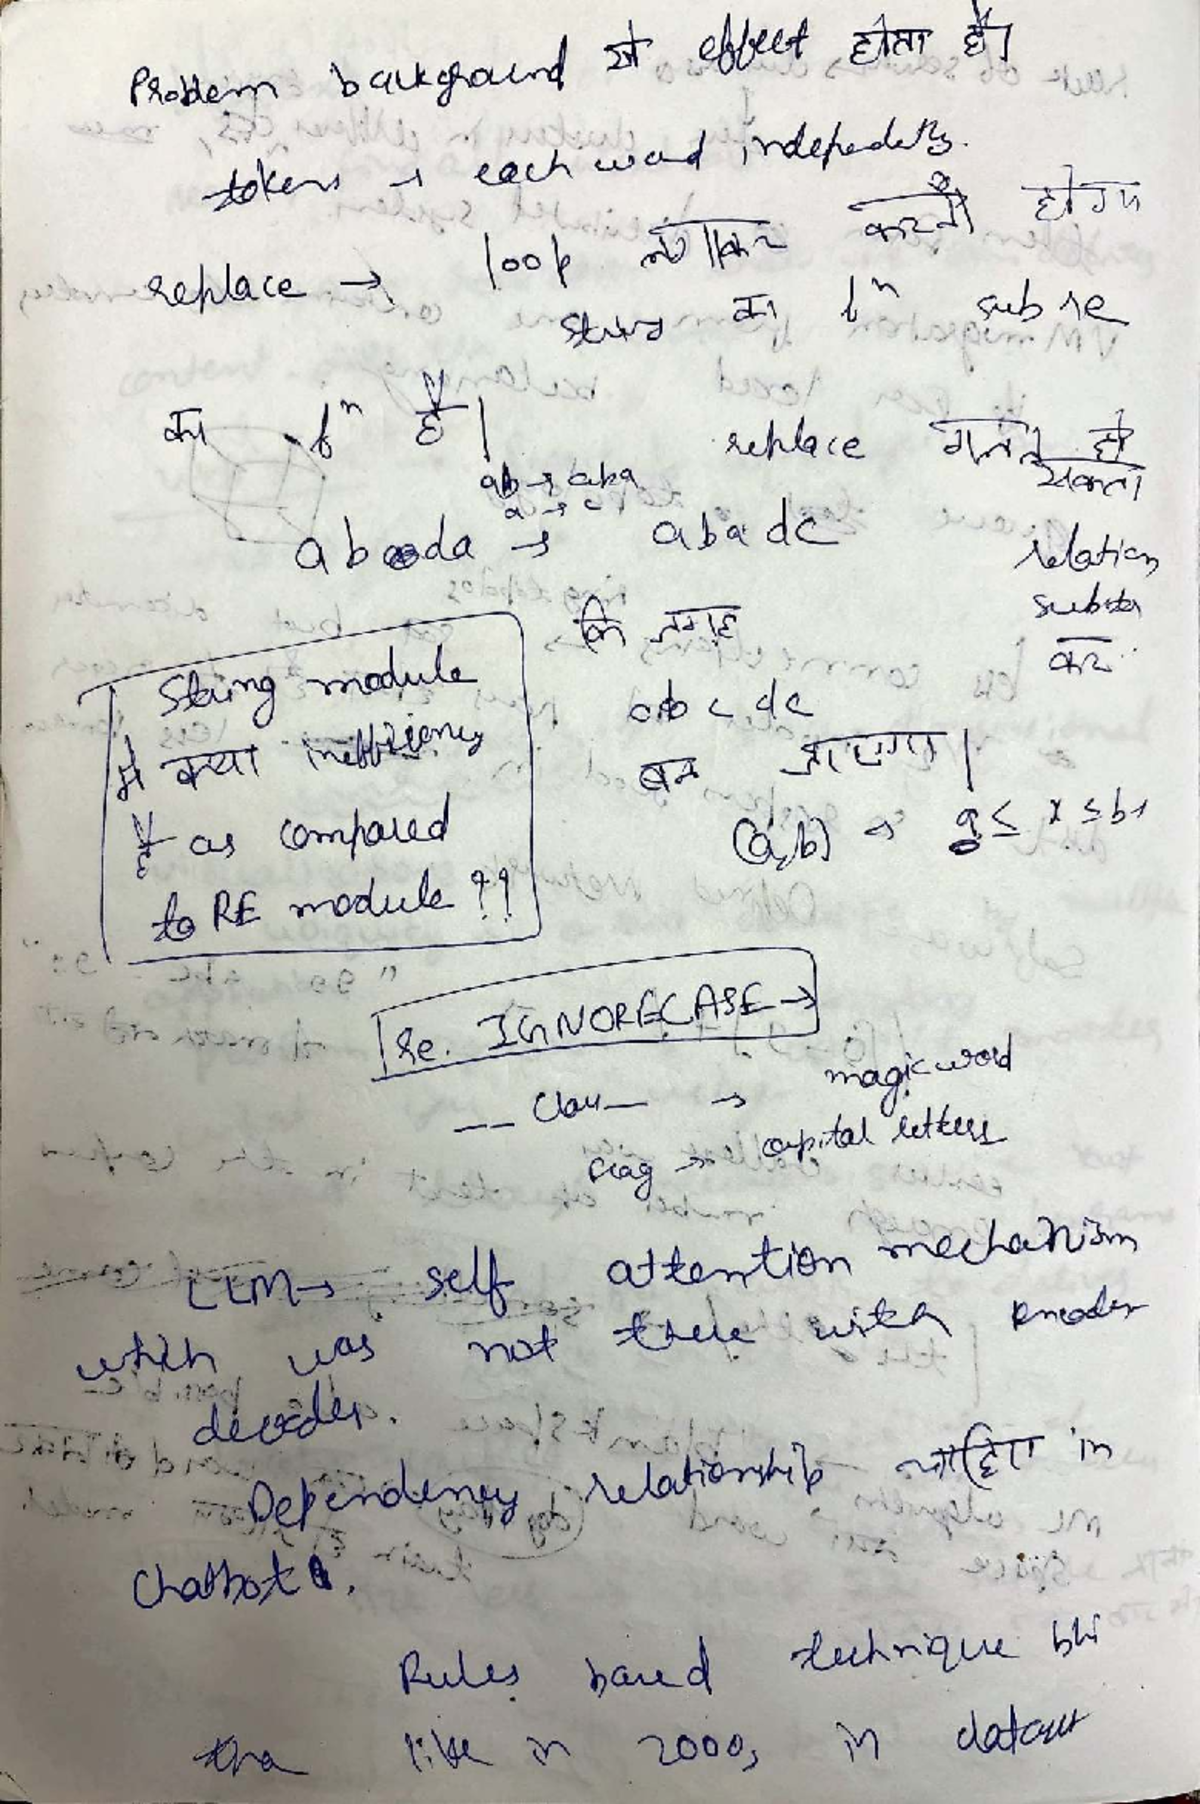 Problem background से effect होता है।
tokens → each word independently.
replace → loop लगाकर करनी होगा
string का fⁿ sub re
का fⁿ है।
replace गलत हो सकता
ab → aba
a → c
aboda → abadc
relation
की जगह
कर
abcdc
बन जाएगा।
(a,b) → a ≤ x ≤ b-1
String module
में क्या inefficiency
है as compared
to RE module ??
re. IGNORECASE →
magic word
capital letters
flag →
LLM → self attention mechanism
which was not there with encoder
decoder.
Dependency relationship चाहिए in
Chatbot.
Rules based technique bhi
tha like in 2000s in